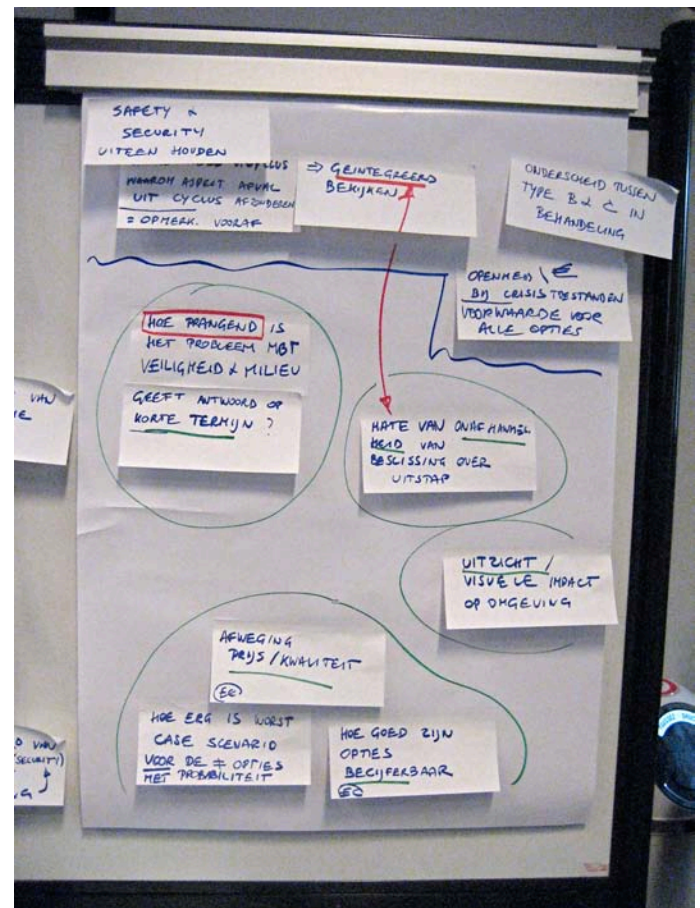 SAFETY &
SECURITY
UITEEN HOUDEN
CYCLUS
WAAROM ASPECT AFVAL
UIT CYCLUS AFZONDEREN
= OPMERK. VOORAF
⇒ GEINTEGREERD
BEKIJKEN
ONDERSCHEID TUSSEN
TYPE B & C IN
BEHANDELING
OPENHEID \ €
BIJ CRISISTOESTANDEN
VOORWAARDE VOOR
ALLE OPTIES
HOE PRANGEND IS
HET PROBLEEM MBT
VEILIGHEID & MILIEU
GEEFT ANTWOORD OP
KORTE TERMIJN ?
VAN
IE
MATE VAN ONAFHANKEL
HEID VAN
BESLISSING OVER
UITSTAP
UITZICHT /
VISUELE IMPACT
OP OMGEVING
AFWEGING
PRIJS / KWALITEIT
EC
HOE ERG IS WORST
CASE SCENARIO
VOOR DE ≠ OPTIES
MET PROBABILITEIT
HOE GOED ZIJN
OPTIES
BECIJFERBAAR
EC
D VAN
(SECURITY)
NG